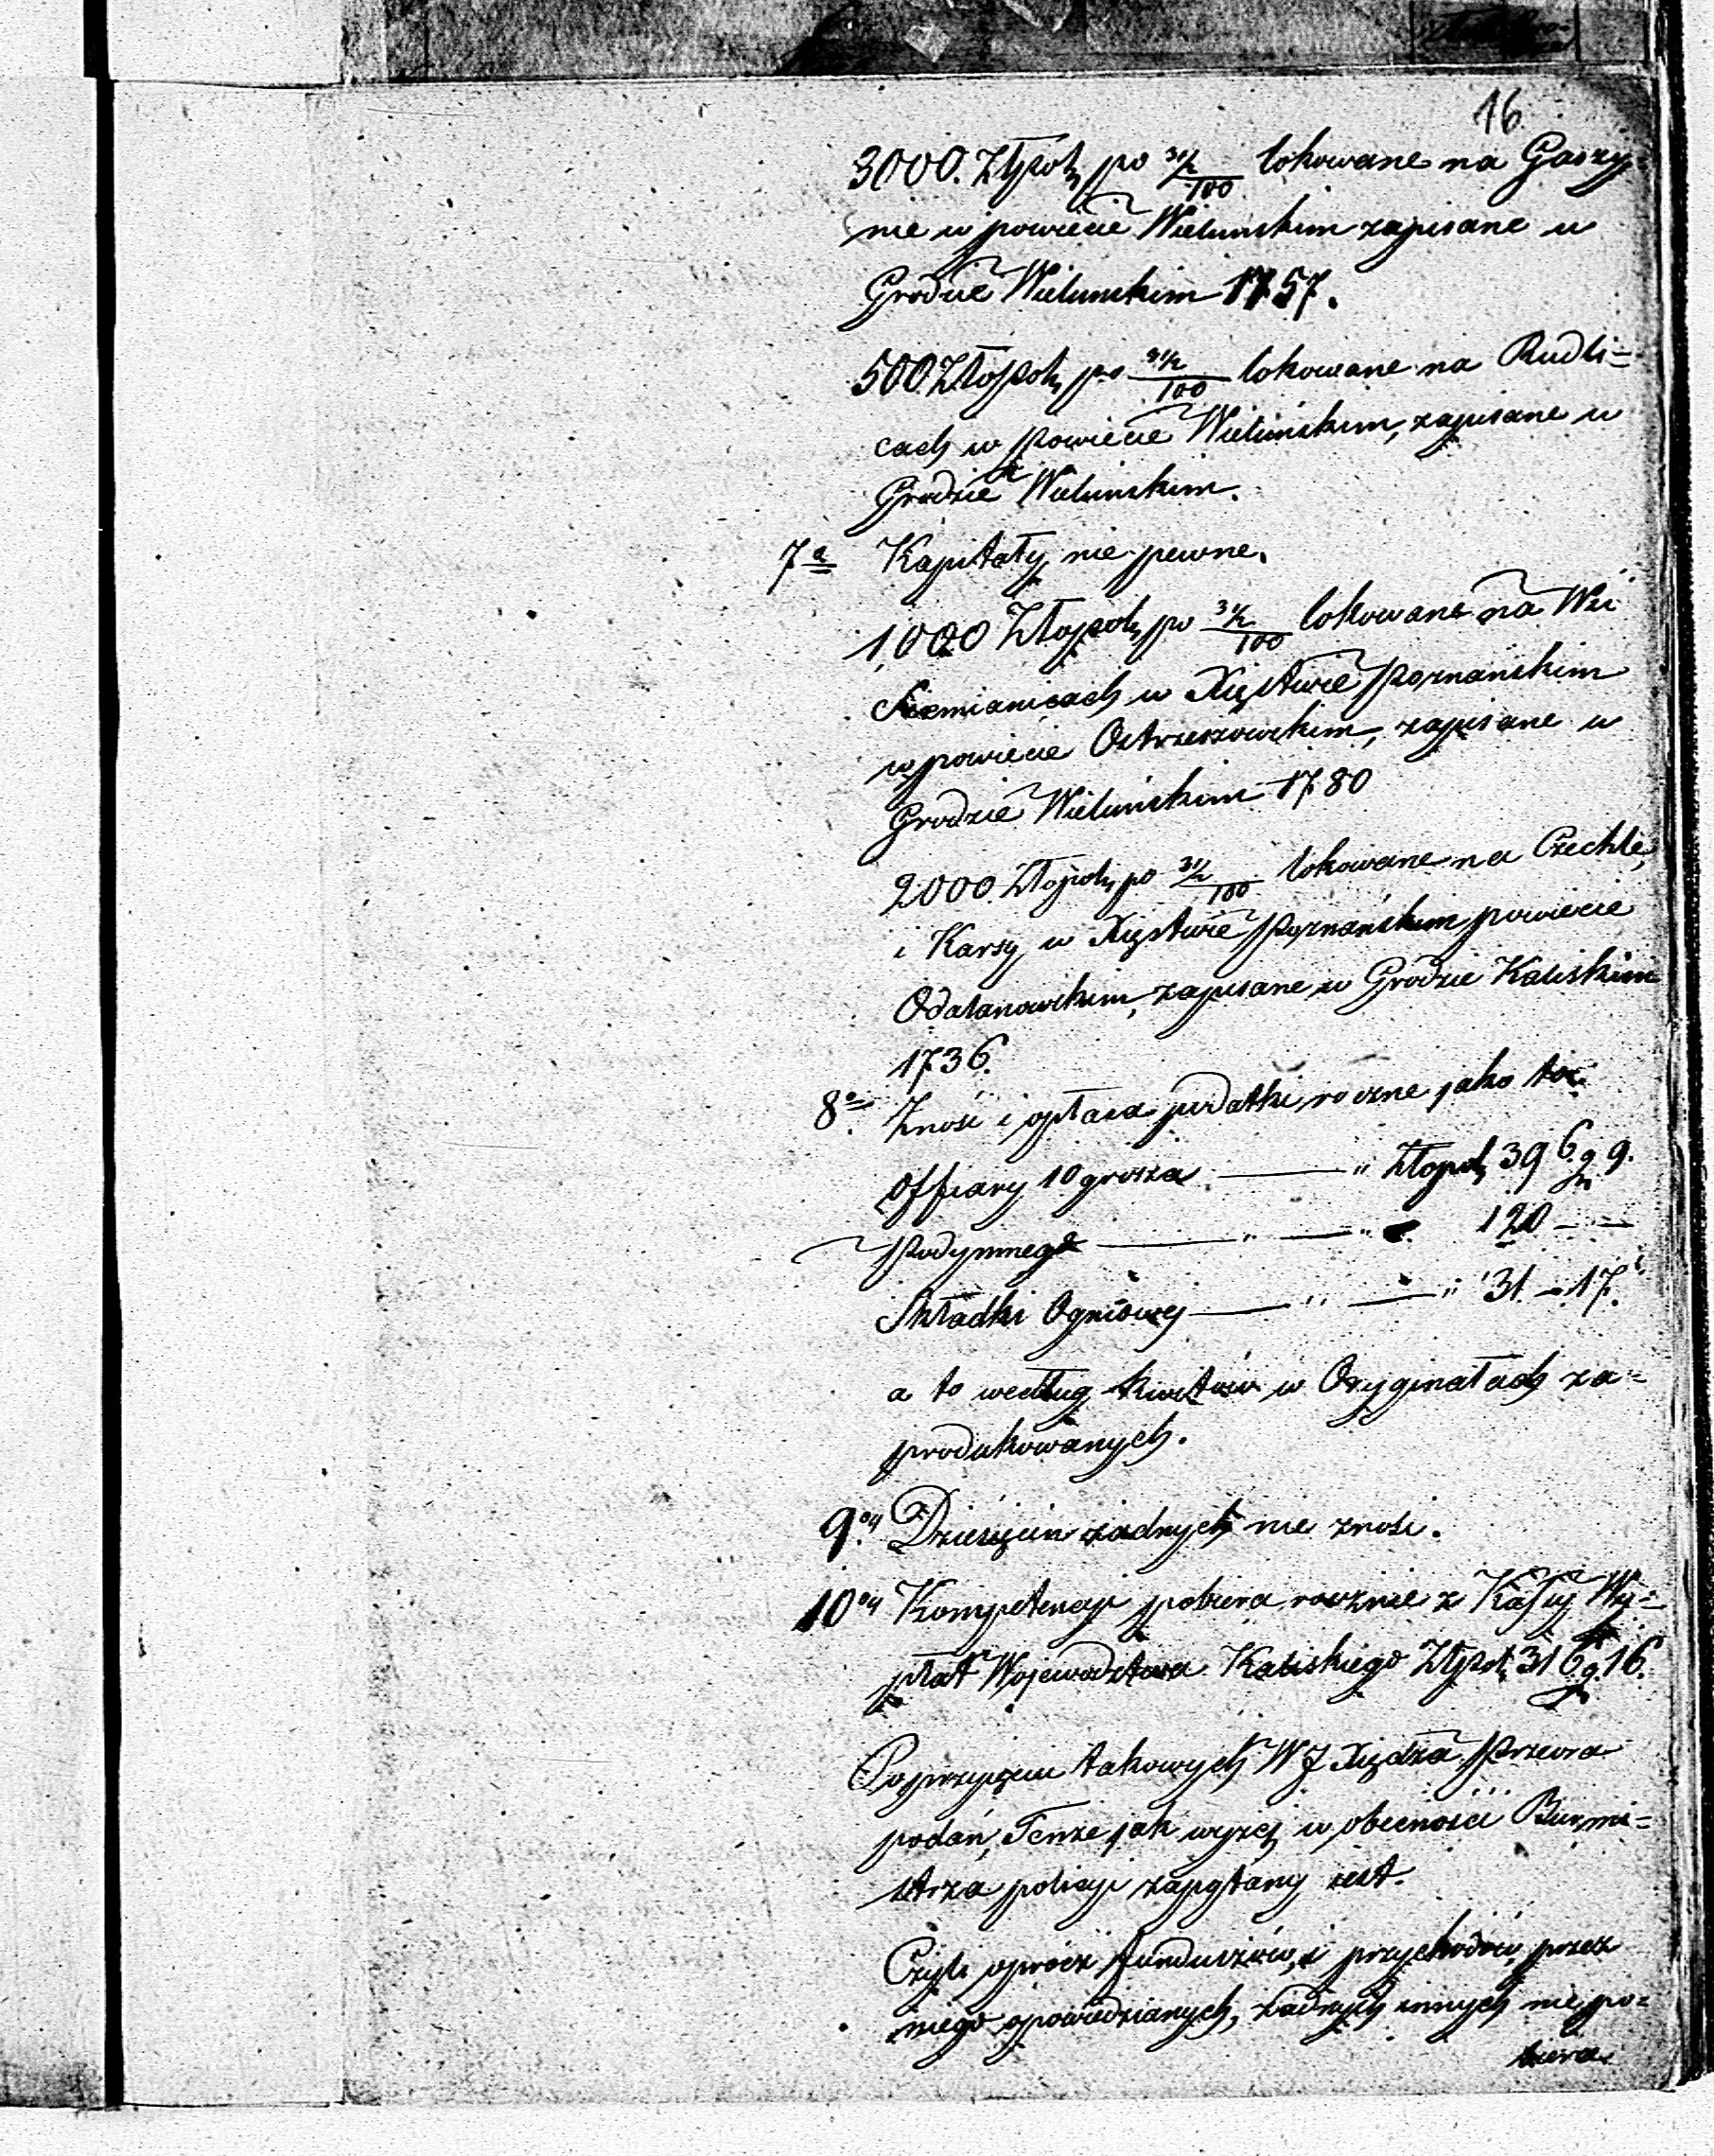 16
3000. Złpol, po 3½/100 lokowane na Gaszy-
nie w powiecie Wielunskim zapisane w
Grodzie Wielunskim 1757.
500 Złopol, po 3½/100 lokowane na Rudli=
cach w powiecie Wieluńskim, zapisane w
Grodzie Wieluńskim.
7a Kapitały nie pewne.
1,000 Złopol, po 3½/100 lokowane na Wsi
Siemianicach w Xięstwie poznańskim
w powiecie Ostrzeszowskim, zapisane w
Grodzie Wieluńskim 1780
2000. Złopol, po 3½/100 lokowane na Czechle,
i Karsy w Xięstwie poznańskim powiecie
Odalanowskim, zapisane w Grodzie Kaliskim
1736.
8o Znosi i opłaca podatki roczne jako to:
Offiary 10 grosza — " Złopol, 396. g 9.
podymnego — " — " 120 — —
Składki Ogniowey — " — " 31 — 17.
a to według kwitów w Oryginałach za=
produkowanych.
9.o Dziesięcin żadnych nie znosi.
10o Kompetencyi pobiera rocznie z Kassy Wy=
płat Województwa Kaliskiego Złpol, 316. g. 16.
Po przyjęciu takowych WJ Xiędza przeora
podań, Tenże jak wyżej w obecności Burmi=
strza policyi zapytany iest.
Czyli oprócz funduszów, i przychodów, przez
niego opowiedzianych, żadnych innych nie po=
biera